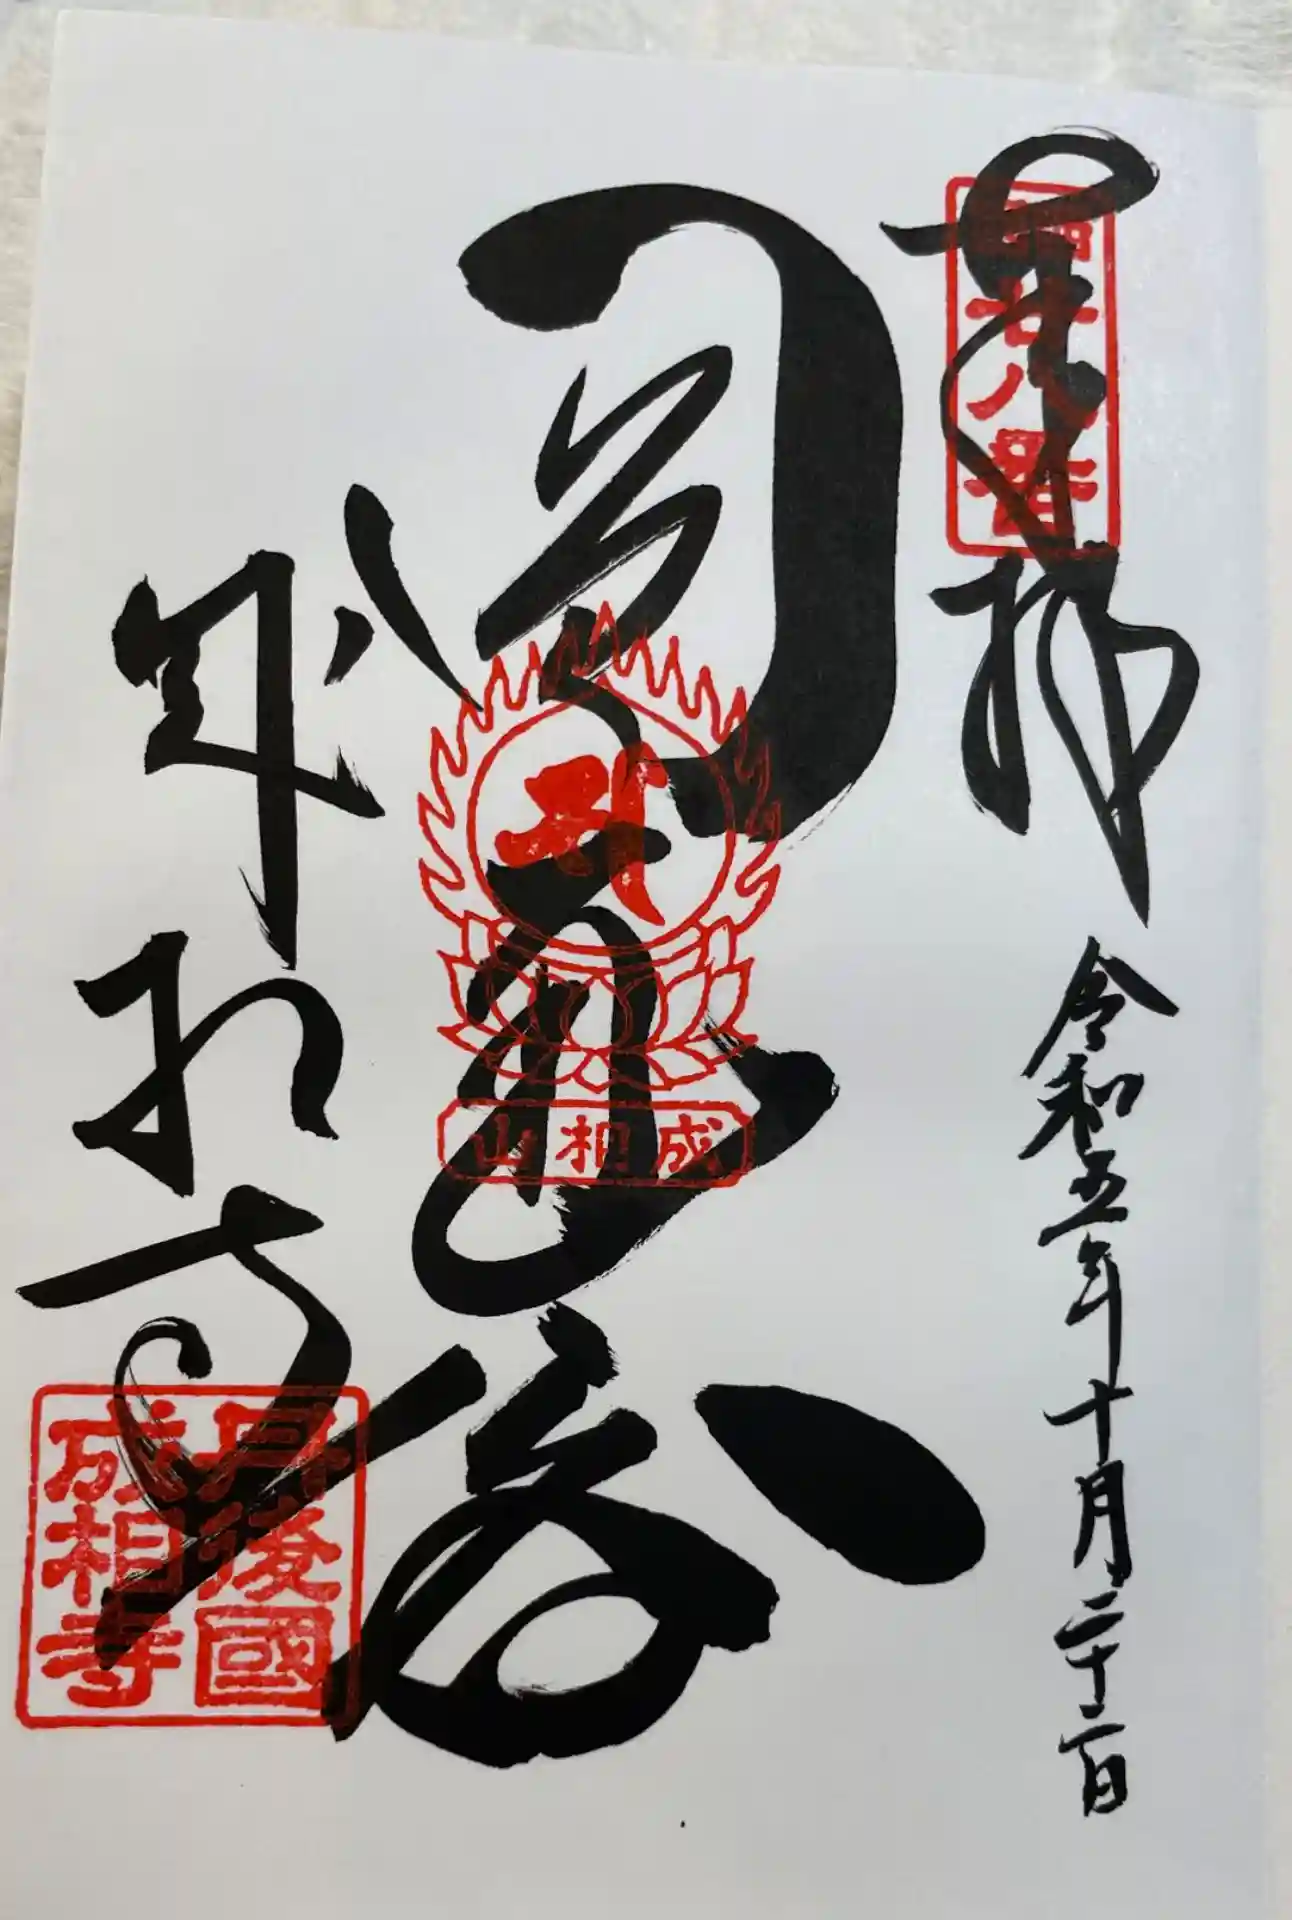 奉拝
令和五年十月二十二日
廿八番
成相山
成相寺
丹後國
成相寺